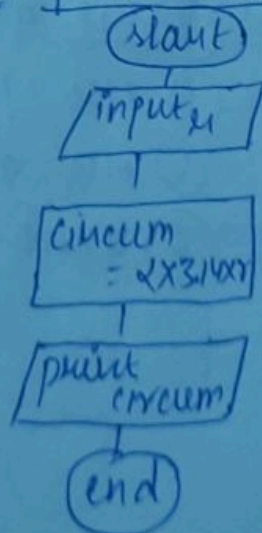 start
input r
circum
= 2x3.14xr
print
circum
end